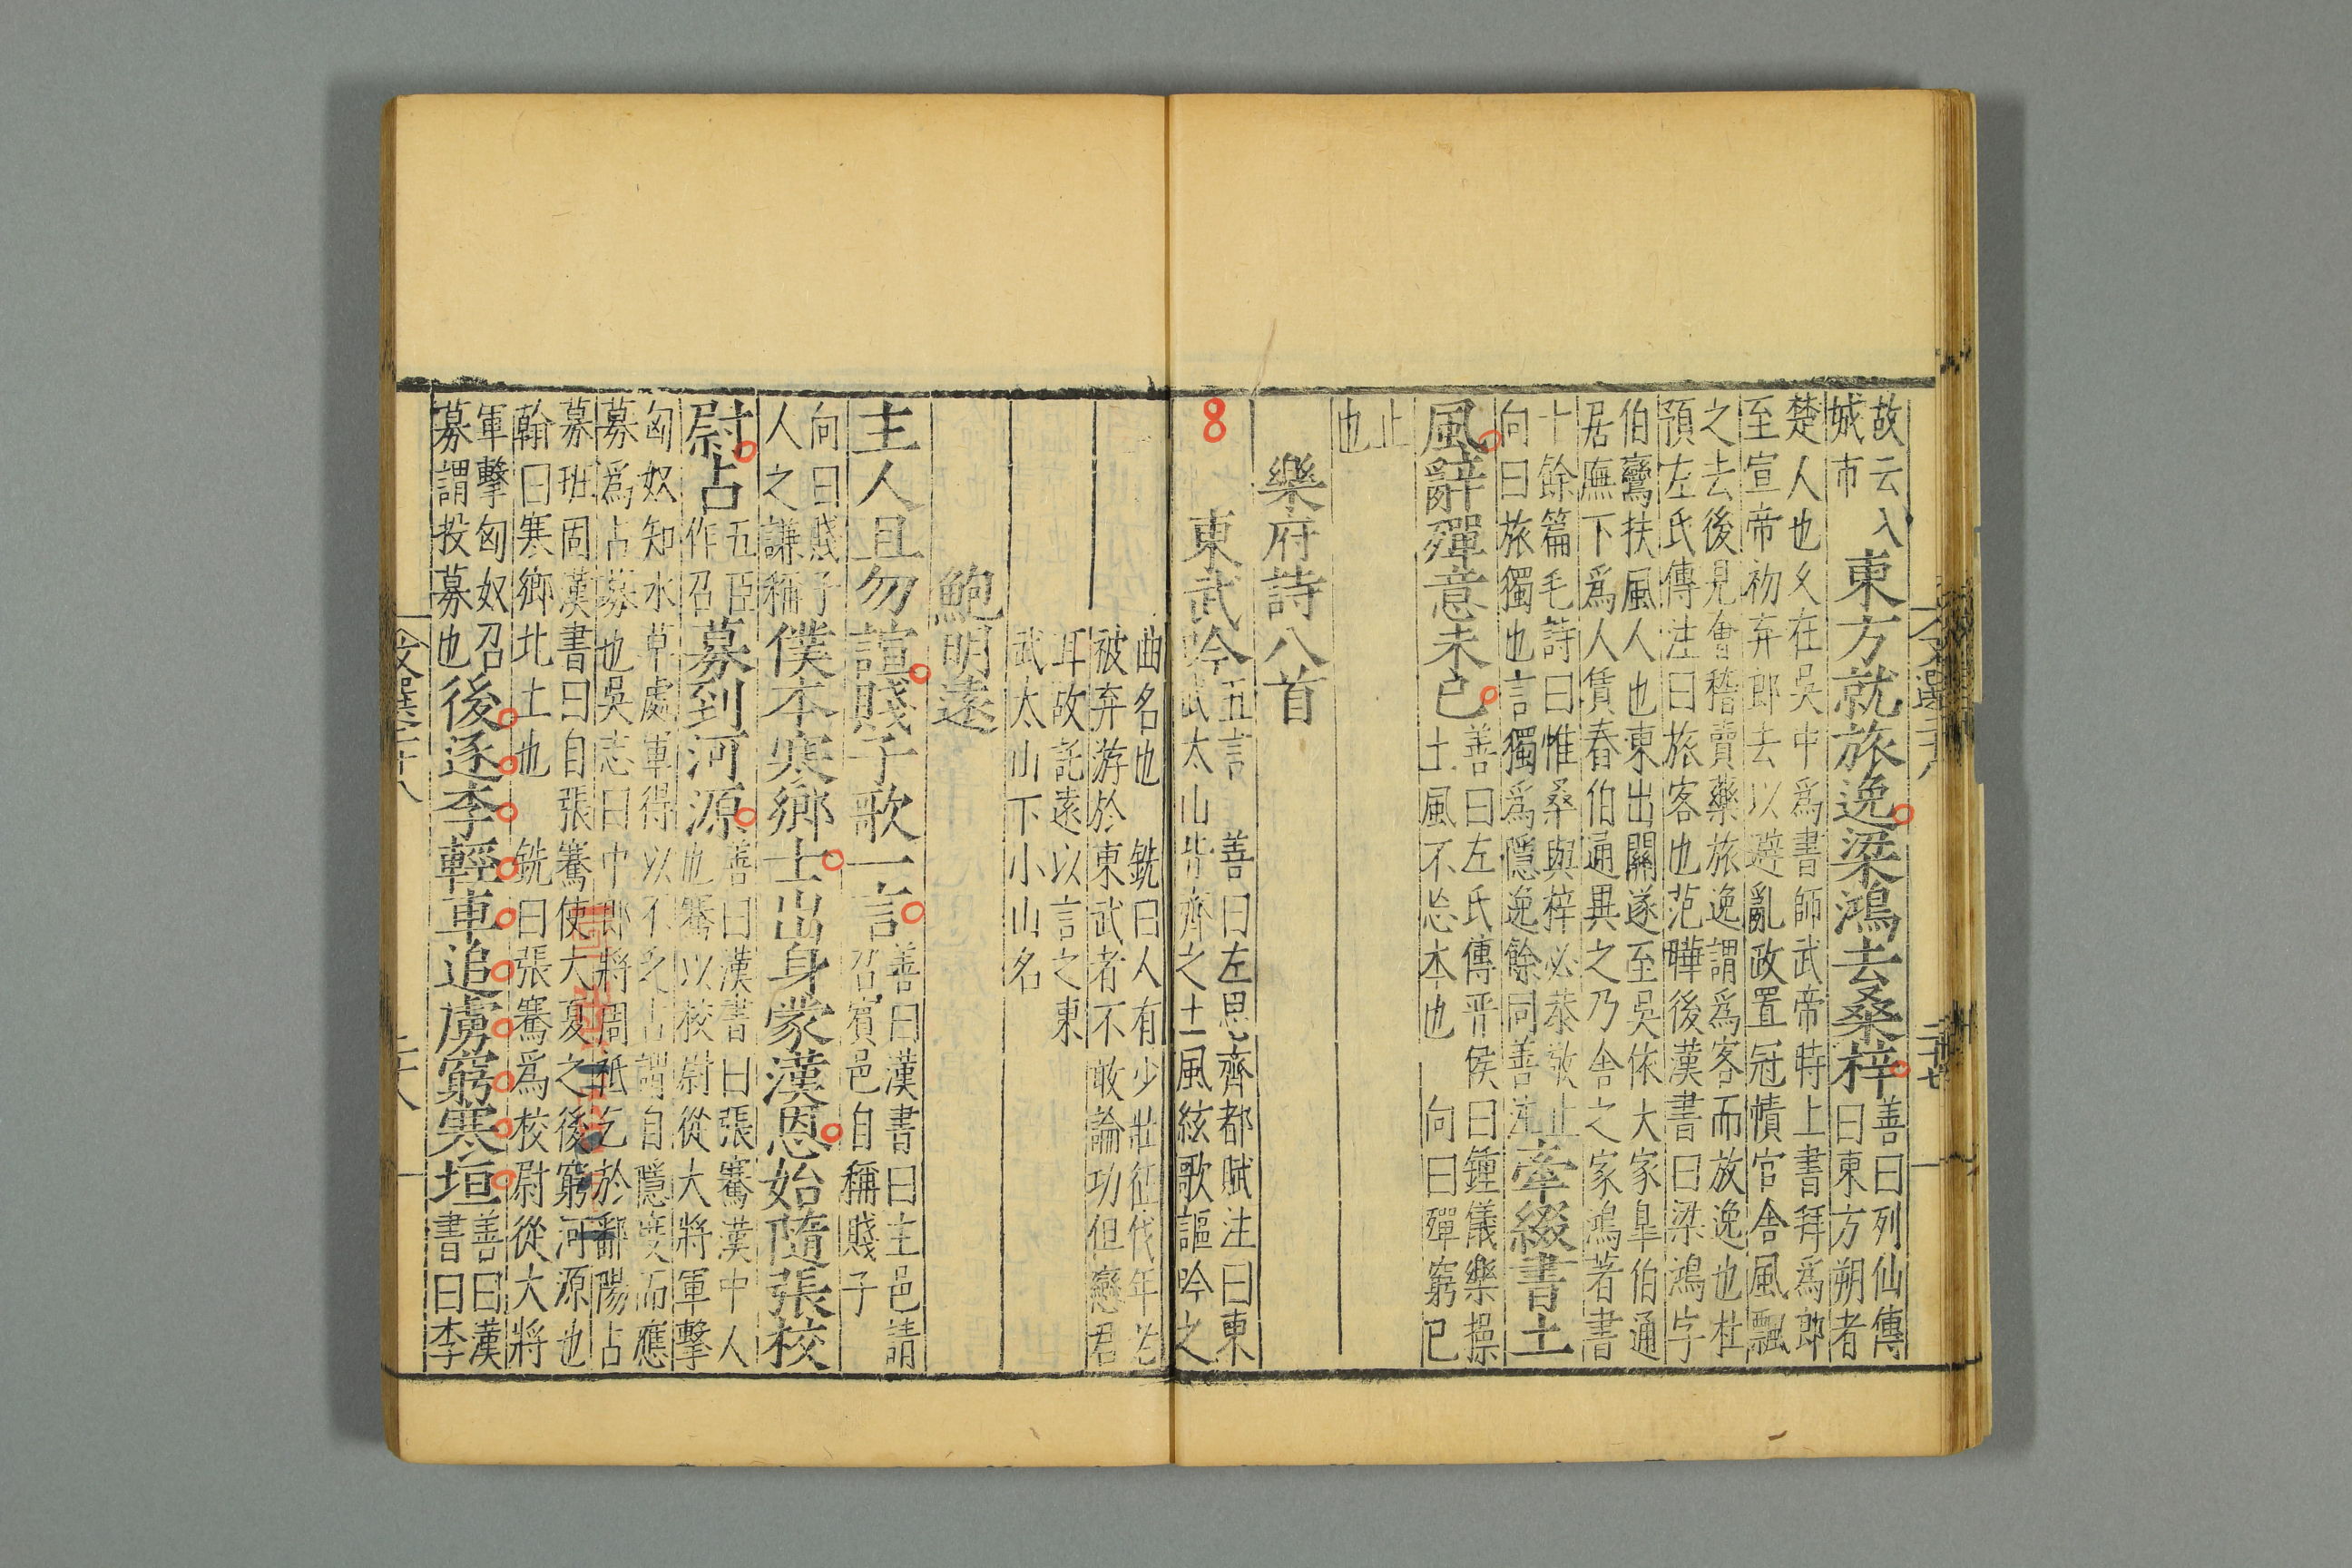 故云入
城市
東方就旅逸梁鴻去桑梓
善曰列仙傳
曰東方朔者
楚人也久在吳中爲書師武帝時上書拜爲郎
至宣帝初弃郎去以避亂政置冠幘官舍風飄
之去後見會稽賣藥旅逸謂爲客而放逸也杜
預左氏傳注曰旅客也范曄後漢書曰梁鴻字
伯鸞扶風人也東出關遂至吳依大家臯伯通
居廡下爲人賃舂伯通異之乃舍之家鴻著書
十餘篇毛詩曰惟桑與梓必恭敬止
向曰旅獨也言獨爲隱逸餘同善注
牽綴書土
風辭殫意未已
善曰左氏傳晋侯曰鍾儀樂操
土風不忘本也 向曰殫窮已
止
也
樂府詩八首
8
東武吟
五言 善曰左思齊都賦注曰東
武太山皆齊之土風絃歌謳吟之
曲名也 銑曰人有少壯征伐年老
被弃游於東武者不敢論功但戀君
耳故託遠以言之東
武太山下小山名
鮑明遠
主人且勿諠賤子歌一言
善曰漢書曰主邑請
召賓邑自稱賤子
向曰賤子
人之謙稱
僕本寒鄉士出身蒙漢恩始隨張校
尉占
五臣
作召
募到河源
善曰漢書曰張騫漢中人
也騫以校尉從大將軍擊
匈奴知水草處軍得以不乏占謂自隱度而應
募爲占募也吳志曰中郎將周祗乞於鄱陽占
募班固漢書曰自張騫使大夏之後窮河源也
翰曰寒鄉北土也 銑曰張騫爲校尉從大將
軍擊匈奴召
募謂投募也
後逐李輕車追虜窮寒垣
善曰漢
書曰李
文選二十八
二十七
文選二十八
二十八